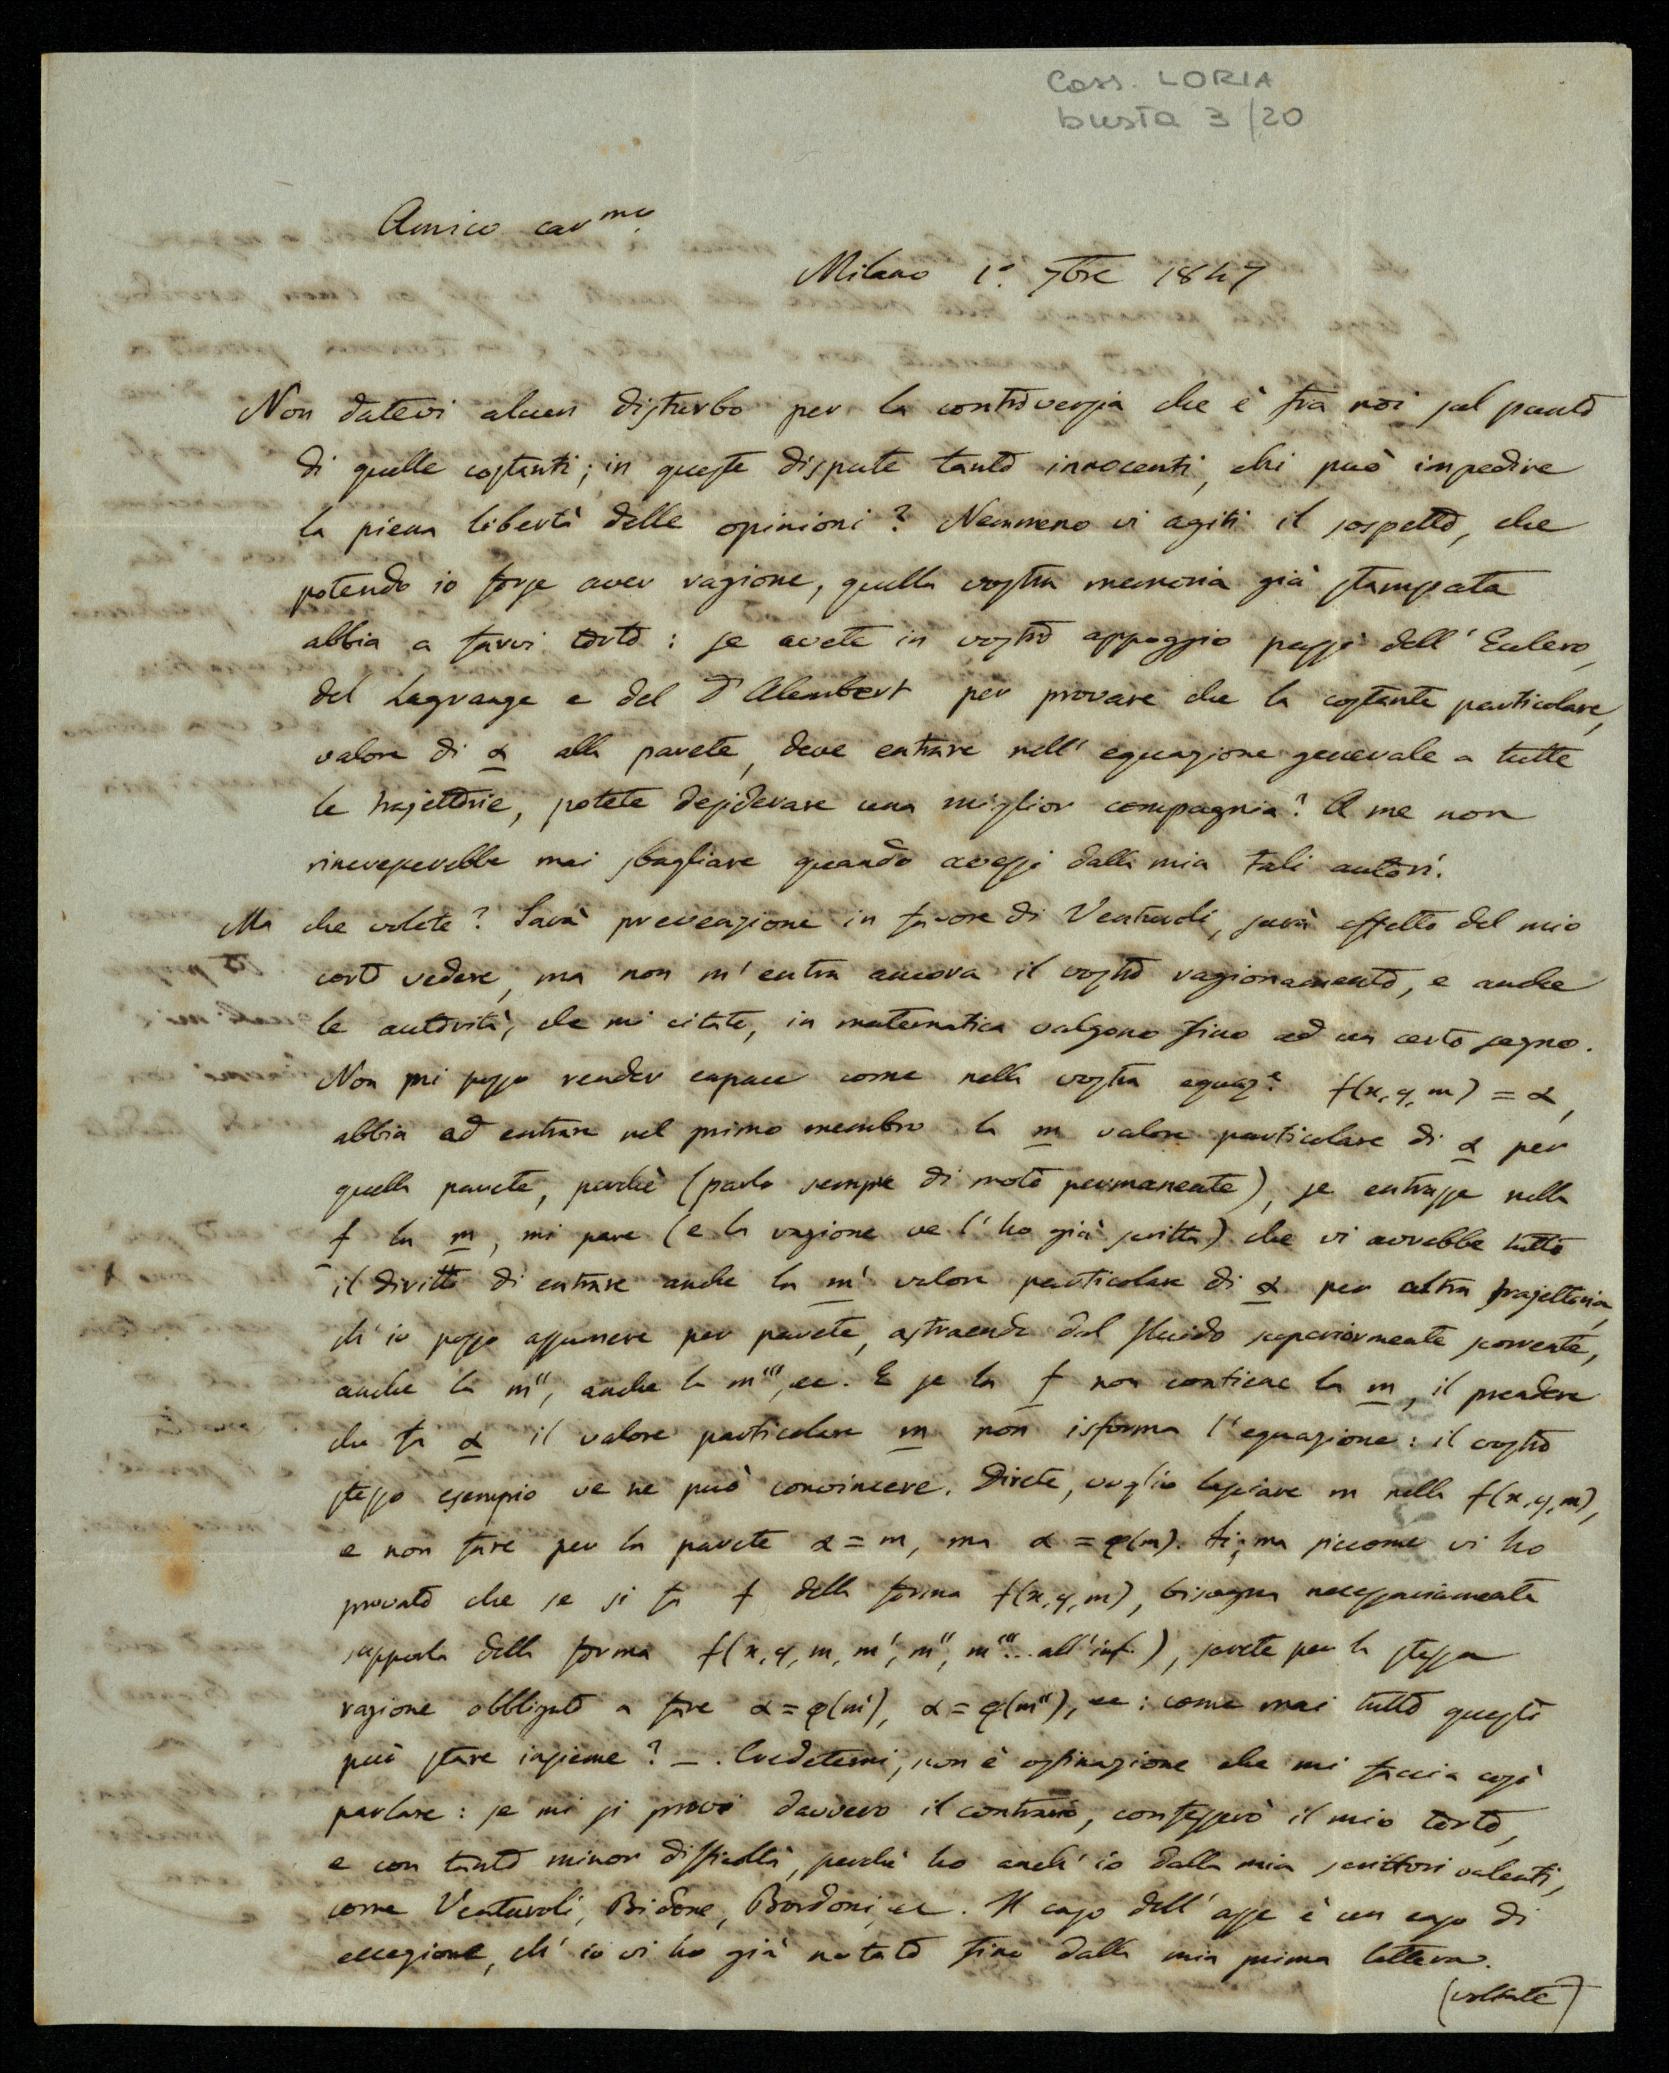 Cass. LORIA
busta 3/20
Amico car.mo
Milano 1.° 7bre 1847
Non datevi alcun disturbo per la controversia che è fra noi sul punto
di quelle costanti; in queste dispute tanto innocenti, chi può impedire
la piena libertà delle opinioni? Nemmeno vi agiti il sospetto, che
potendo io forse aver ragione, quella vostra memoria già stampata
abbia a farvi torto: se avete in vostro appoggio passi dell'Eulero,
del Lagrange e del D'Alembert per provare che la costante particolare,
valore di α alla parete, deve entrare nell'equazione generale a tutte
le trajettorie, potete desiderare una miglior compagnia? A me non
rincrescerebbe mai sbagliare quando avessi dalla mia tali autori.
Ma che volete? Sarà prevenzione in favore di Venturoli, sarà effetto del mio
corto vedere, ma non m'entra ancora il vostro ragionamento, e anche
le autorità, che mi citate, in matematica valgono fino ad un certo segno.
Non mi posso render capace come nella vostra equaz.e f(x, y, m) = α,
abbia ad entrare nel primo membro la m valore particolare di α per
quella parete, perchè (parlo sempre di moto permanente), se entrasse nella
f la m, mi pare (e la ragione ve l'ho già scritta) che vi avrebbe tutto
il diritto di entrare anche la m' valore particolare di α per altra trajettoria,
ch'io posso assumere per parete, astraendo dal fluido superiormente scorrente,
anche la m'', anche la m''', ec. E se la f non contiene la m, il prendere
che fa α il valore particolare m non isforma l'equazione: il vostro
stesso esempio ve ne può convincere. Direte, voglio lasciare m nella f(x, y, m),
e non fare per la parete α = m, ma α = φ(m). Sì; ma siccome vi ho
provato che se si fa f della forma f(x, y, m), bisogna necessariamente
supporla della forma f(x, y, m, m', m'', m'''... all'inf.), sarete per la stessa
ragione obbligato a fare α = φ(m'), α = φ(m''), ec: come mai tutto questo
può stare insieme? —. Credetemi, non è ostinazione che mi faccia così
parlare: se mi si prova davvero il contrario, confesserò il mio torto,
e con tanto minor difficoltà, perchè ho anch'io dalla mia scrittori valenti,
come Venturoli, Bidone, Bordoni, ec. Il caso dell'asse è un caso di
eccezione, ch'io vi ho già notato fino dalla mia prima lettera.
(voltate)